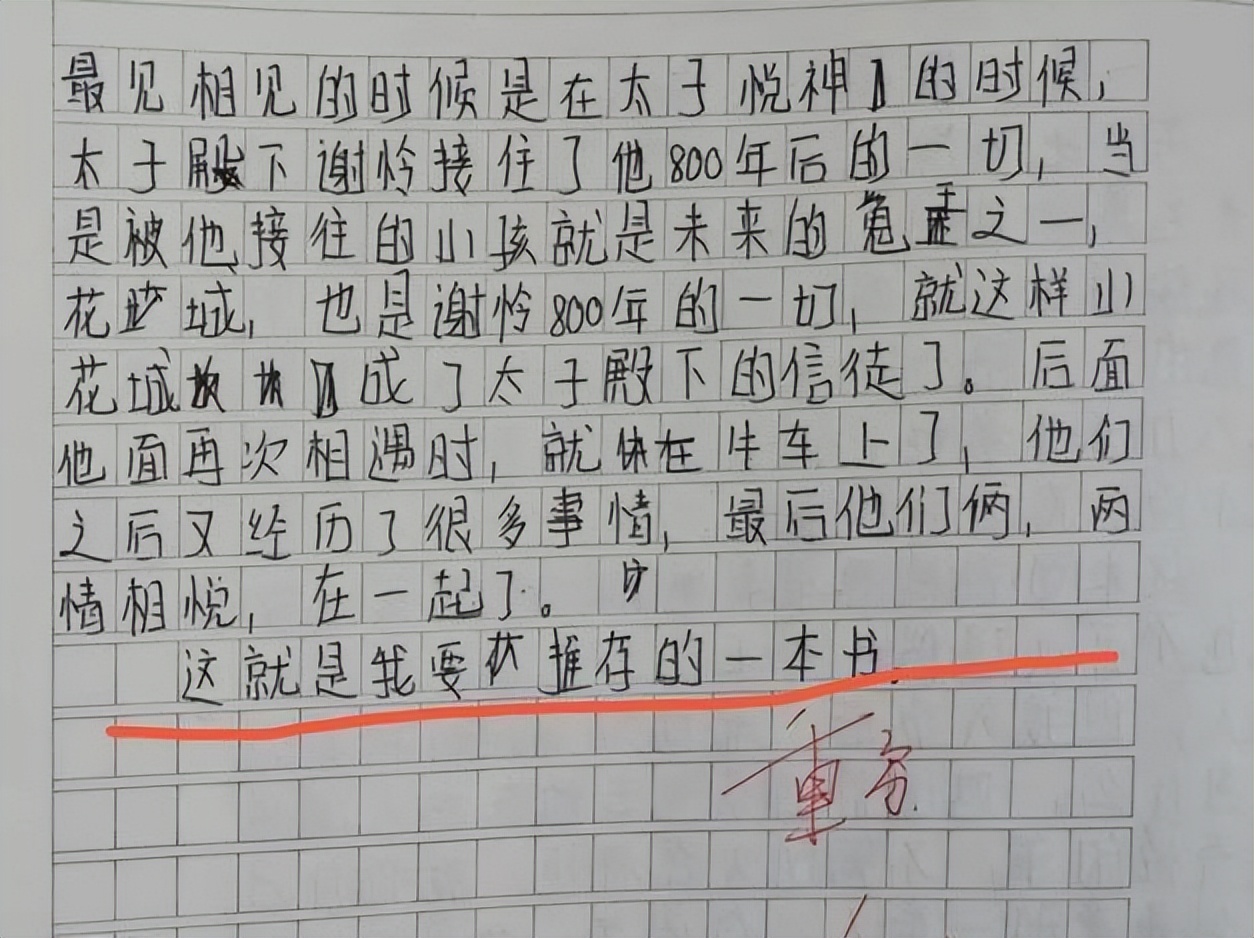 最见相见的时候是在太子悦神的时候,
太子殿下谢怜接住了他800年后的一切,当
是被他接往的小孩就是未来的鬼王之一,
花城,也是谢怜800年的一切,就这样小
花城成了太子殿下的信徒了。后面
他面再次相遇时,就在牛车上了,他们
之后又经历了很多事情,最后他们俩,两
情相悦,在一起了。
这就是我要推存的一本书.
重写